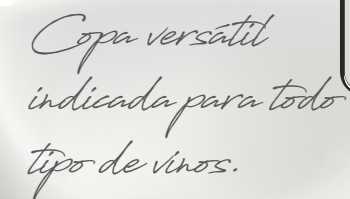 Copa versátil
indicada para todo
tipo de vinos.